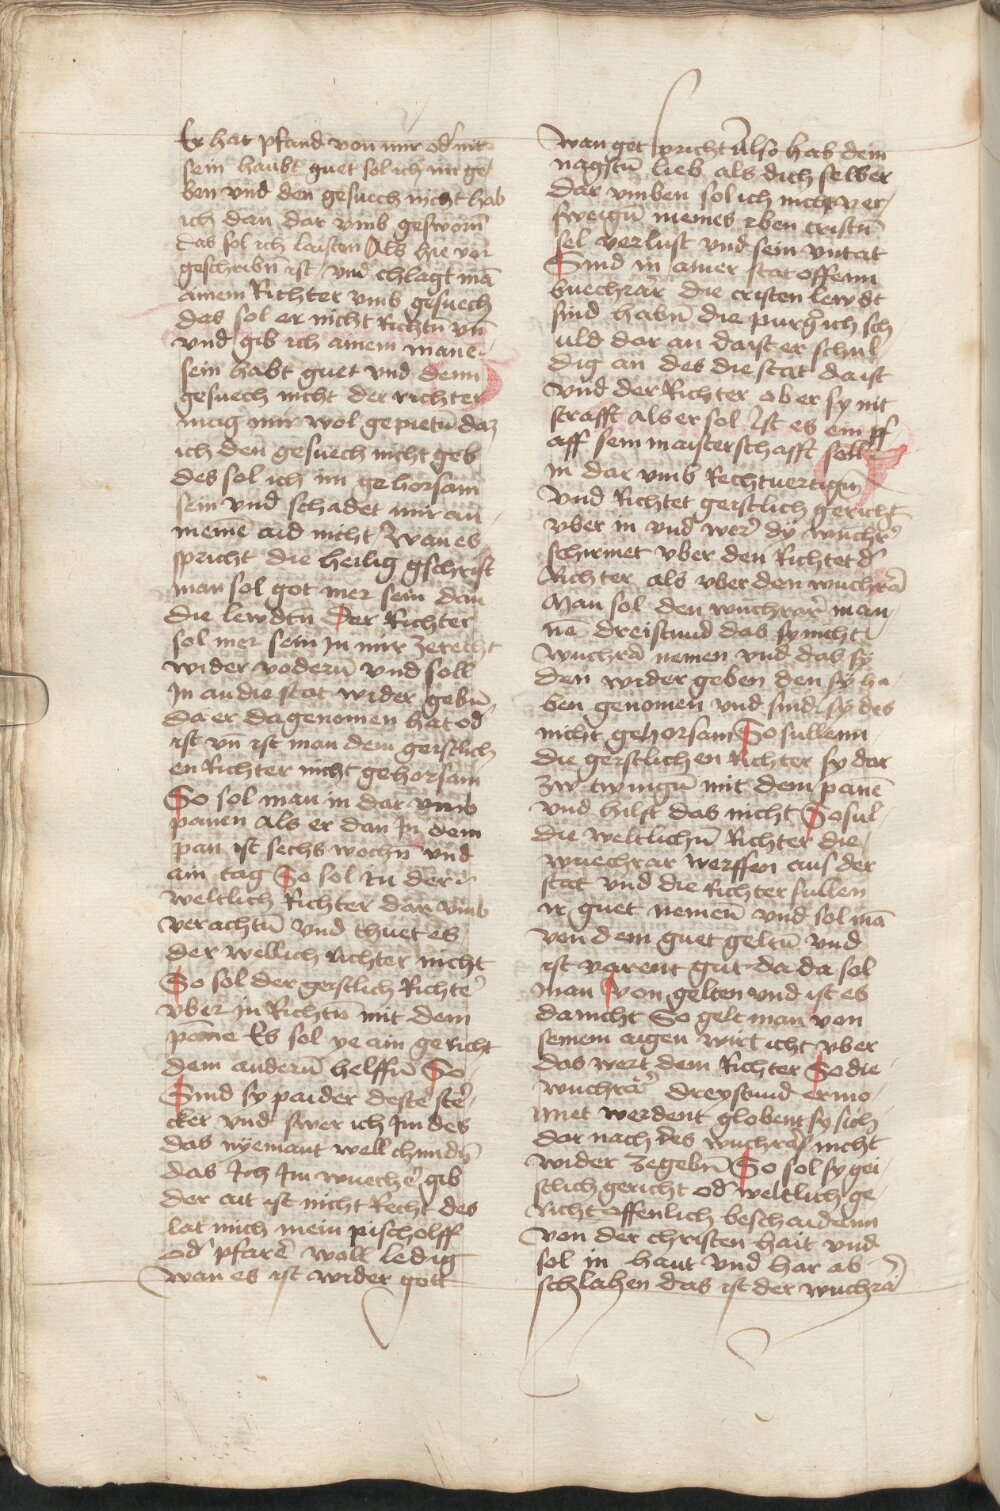 Er hat pfand von mir od' nit
sein haubt guet sol ich im ge-
ben vnd den gesuech nicht hab
ich dan dar vmb gesworn
das sol ich laisten Als hie vor
geschribn̄ ist / vnd chlagt mā
ainem Richter vmb gesuech
des sol er nicht Richtn̄ vn̄
vnd gib ich ainem mane
sein habt guet vnd denn
gesuech nicht der richter
mag mir wol gepietn̄ daz
ich den gesuech nicht geb
des sol ich im gehorsam
sein vnd schadet mir an
meinē aid nicht / wan es
spricht die heilig gschrift
man sol got mer sein dan
die lewdtn̄ Der Richter
sol mer sein In mir zerecht
wider vodern̄ vnd soll
In an die stat wider gebn̄
da er da genomen hat od'
ist vn̄ ist man dem geistlich
en Richter nicht gehorsam
So sol man in dar vmb
panen als er dan In dem
pan ist sechs wochn̄ vnd
ain tag So sol in der
weltlich Richter dar vmb
verachtn̄ vnd thuet es
der wellich richter nicht
So sol der geistlich Richte'
vber in Richtn̄ mit dem
pāne Es sol ye ain gericht
dem andern̄ helffn̄ So
Sind sy paider deste ste'
cker vnd swer ich Im des
das nyemant well chundn̄
das Ich Im wueche' gib
der ait ist nicht Recht des
lat mich mein pischolff
od' pfare' woll ledig
wan es ist wider gott
wan got spricht Also hab dein
nagstn̄ lieb als dich selber
Dar vmben sol ich nicht ver-
sweign̄ meines eben cristn̄
sel verlust vnd sein vntat
Sind in ainer stat offenn
wuechrar die cristen lewdt
sind habn̄ die purg' ich sch
uld dar an da ist er schul
dig an des die stat da ist
vnd der Richter ob er sy nit
strafft als er sol Ist es ein pf
aff sein maisterschafft soll
in dar vmb Rechtuertign̄
vnd Richtet geistlich gericht
vber in vnd wer' dy wuchr'
schirmet vber den Richtet d'
Richter als vber den wuchrā
Man sol den wuchrar' man
nē dreistund das sy nicht
wuchrā nemen vnd das sy
den wider geben den sy ha-
ben genomen vnd sind sy des
nicht gehorsam So sullenn
die geistlichen Richter sy dar
zw twingn̄ mit dem panē
vnd hilft das nicht So sul
die weltlichn̄ Richter die
wuechrar werffen aus der
stat vnd die Richter sullen
ir guet nemen̄ vnd sol mā
von dem guet geltn̄ vnd
ist varent gut da da sol
man von gelten vnd ist es
da nicht So gelt man von
seinem aigen wirt icht vber
das wert dem Richter So die
wuchrār dreystund ermo-
net werdent globent sy sich
dar nach des wuchrās nicht
wider zegebn̄ So sol sy gei
stlich gericht od' weltlich ge-
richt offenlich beschaidenn
von der christen hait vnd
sol in haut vnd har ab
schlahen das ist der wuchrā